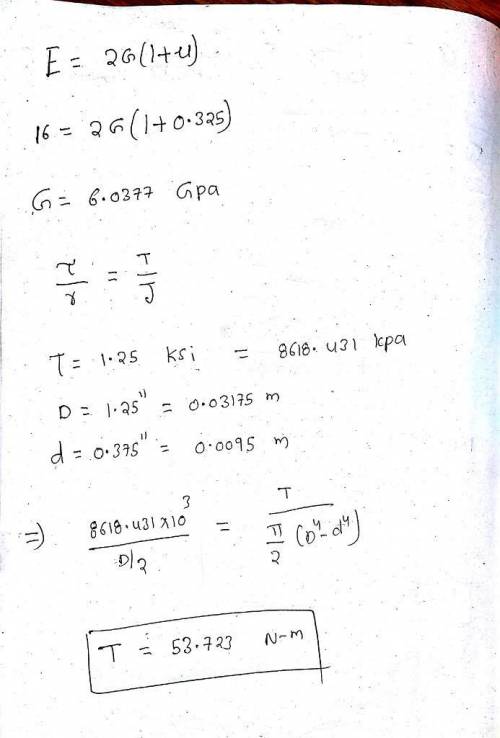 E = 2G(1+u)
16 = 2G(1+0.325)
G = 6.0377 Gpa
τ/r = T/J
T = 1.25 ksi = 8618.431 kpa
D = 1.25" = 0.03175 m
d = 0.375" = 0.0095 m
=> 8618.431×10³ / D/2 = T / π/2 (D⁴-d⁴)
T = 53.723 N-m